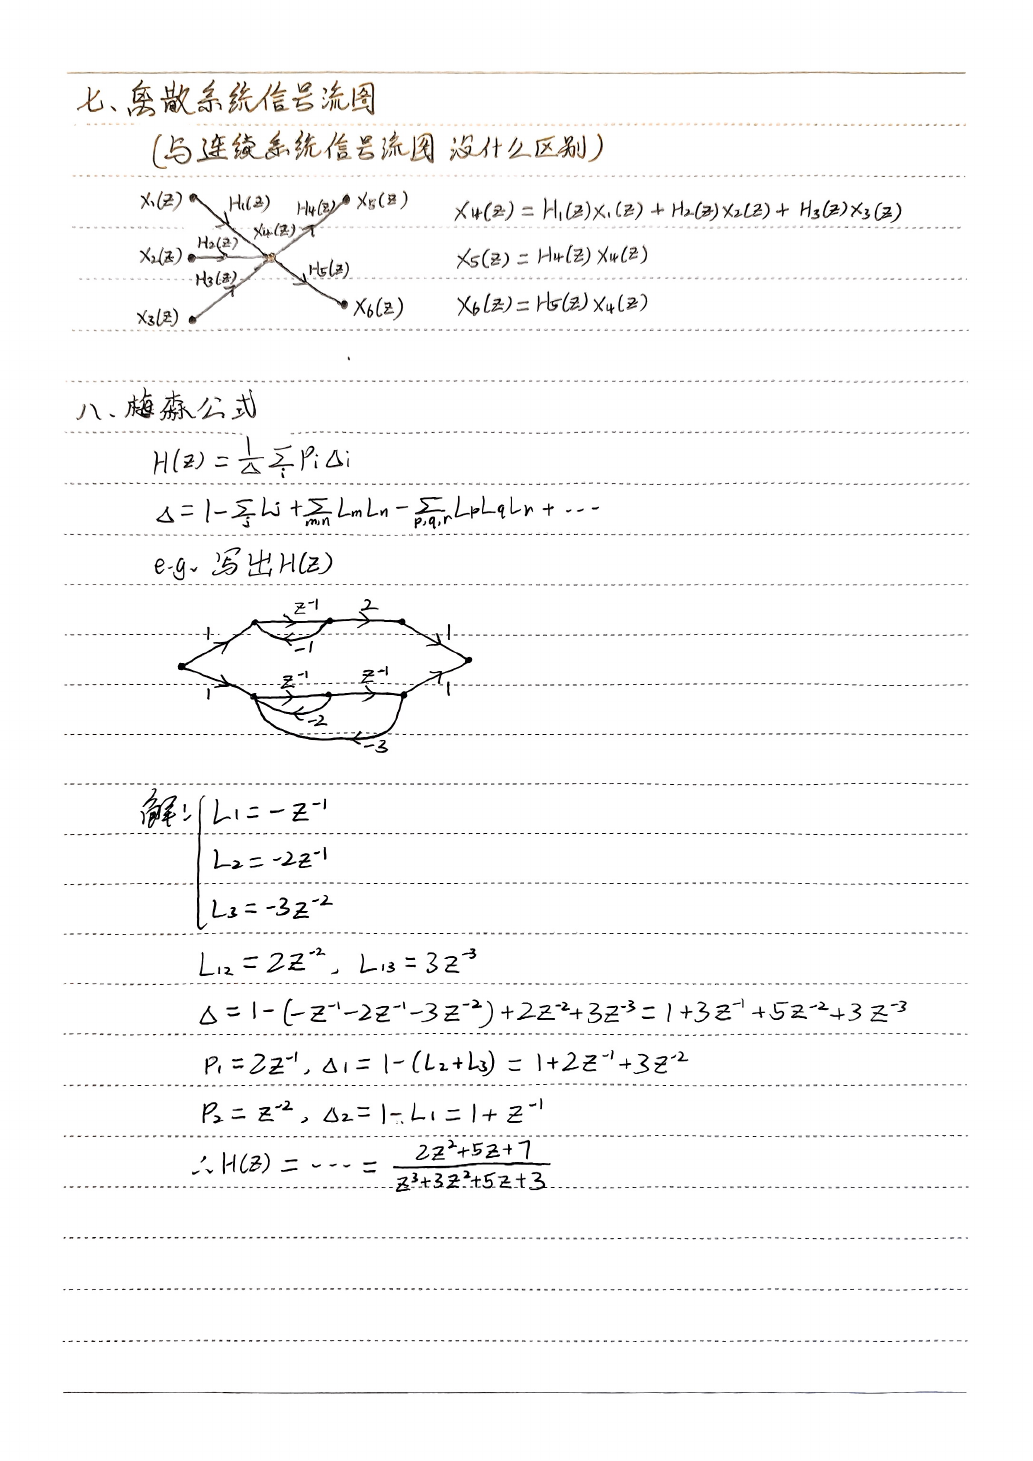 七、离散系统信号流图
(与连续系统信号流图 没什么区别)
X₁(z) H₁(z) H₄(z) X₅(z) X₄(z) = H₁(z)X₁(z) + H₂(z)X₂(z) + H₃(z)X₃(z)
X₂(z) H₂(z) X₄(z) X₅(z) = H₄(z)X₄(z)
H₃(z) H₅(z)
X₃(z) X₆(z) X₆(z) = H₅(z)X₄(z)
八、梅森公式
H(z) = 1/Δ ∑ᵢ PᵢΔᵢ
Δ = 1-∑ⱼ Lⱼ + ∑m,n LmLn - ∑p,q,r LpLqLr + ···
e.g. 写出H(z)
z⁻¹ 2
1 -1 1
z⁻¹ z⁻¹
1 -2 1
-3
解: L₁ = -z⁻¹
L₂ = -2z⁻¹
L₃ = -3z⁻²
L₁₂ = 2z⁻², L₁₃ = 3z⁻³
Δ = 1-(-z⁻¹-2z⁻¹-3z⁻²)+2z⁻²+3z⁻³ = 1+3z⁻¹+5z⁻²+3z⁻³
P₁ = 2z⁻¹, Δ₁ = 1-(L₂+L₃) = 1+2z⁻¹+3z⁻²
P₂ = z⁻², Δ₂ = 1-L₁ = 1+z⁻¹
∴ H(z) = ···· = (2z²+5z+7)/(z³+3z²+5z+3)